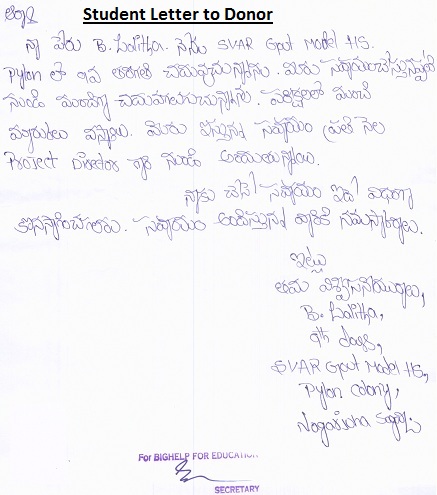 Student Letter to Donor
నా పేరు B. Lalitha. నేను SVAR Govt Model HS.
Pylon లో 9వ తరగతి చదువుచున్నాను. మీరు సహాయంచేస్తున్నప్పటి
నుండి మంచిగా చదువగలుగుచున్నాను. పరీక్షలలో మంచి
మార్కులు వస్తాయి. మీరు ఇస్తున్న సహాయం ప్రతి నెల
Project Director గారి నుండి అందుతున్నాయి.
నాకు చేసే సహాయం ఇదే విధంగా
కొనసాగించగలరు. సహాయం అందిస్తున్న వారికి నమస్కారాలు.
ఇట్లు
తమ విశ్వసనీయురాలు,
B. Lalitha,
9th class,
SVAR Govt Model HS,
Pylon colony,
Nagarjuna sagar.
For BIGHELP FOR EDUCATION
SECRETARY